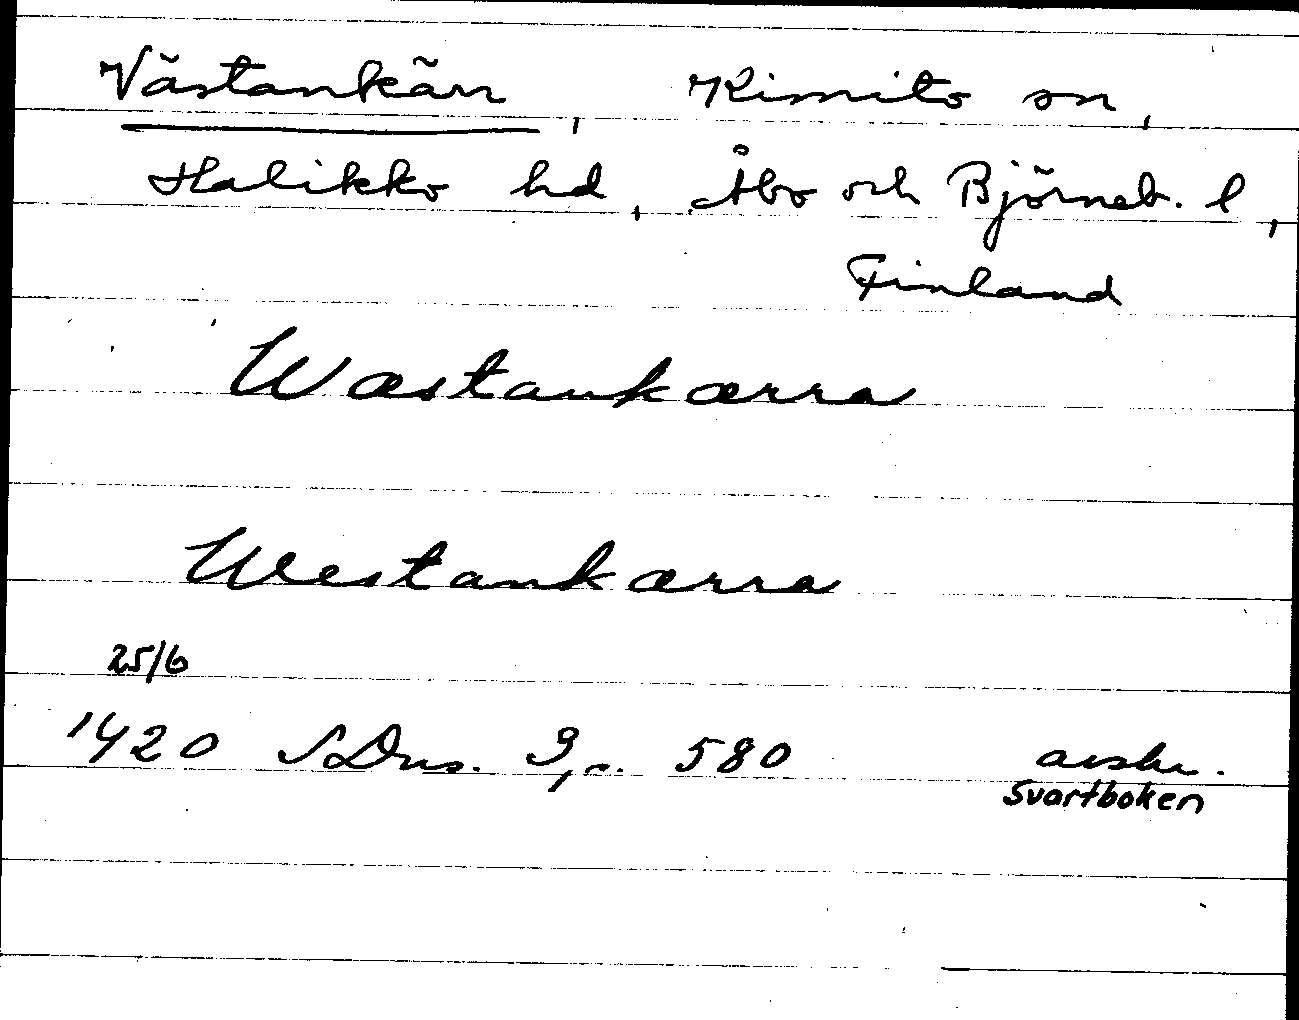 Västankärr, Kimito sn,
Halikko hd, Åbo och Björneb. l,
Finland
Wæstankærra
Westankærra
25/6
1420 SDns. 3, s. 580 avskr.
Svartboken